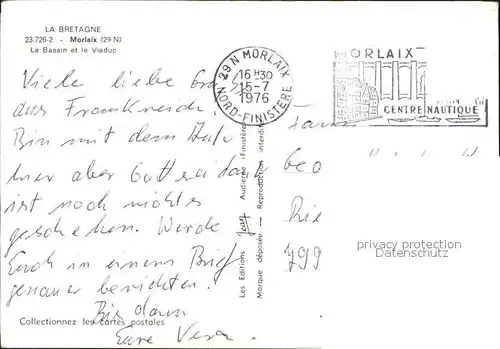 LA BRETAGNE
23.726-2 - Morlaix (29 N)
Le Bassin et le Viaduc
Viele liebe
aus Frankreich.
Bin mit dem Auto
hier aber Gott sei dank
ist noch nichts
geschehen. Werde
Euch in einem Brief
genauer berichten!
Bis dann
Eure Vera.
Collectionnez les cartes postales
Les Editions Jean Audierne (Finistère)
Marque déposée - Reproduction interdite
29 N MORLAIX
16 H 30
15-7
1976
NORD-FINISTERE
MORLAIX
CENTRE NAUTIQUE
Fam
Geo
799
privacy protection
Datenschutz